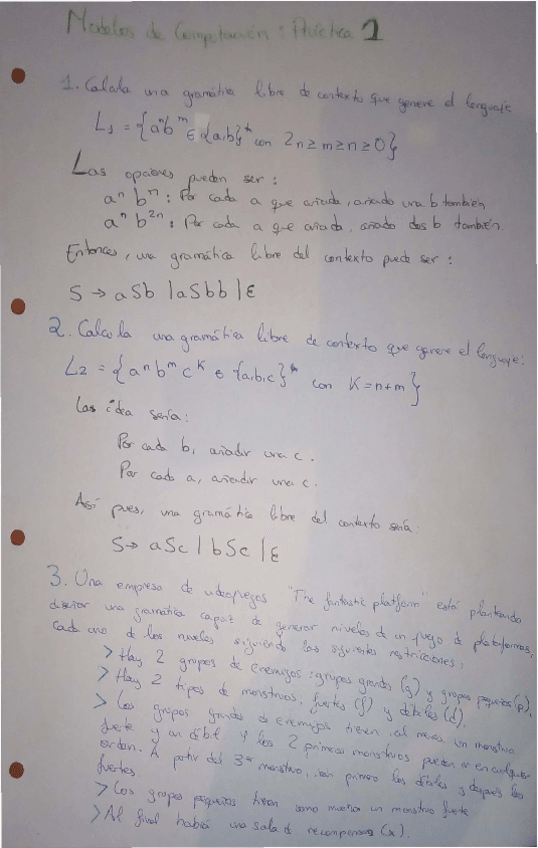 Modelos de Computación: Práctica 1
1. Calcula una gramática libre de contexto que genere el lenguaje
L₁ = {aⁿbᵐ ∈ {a,b}* con 2n ≥ m ≥ n ≥ 0}
Las opciones pueden ser:
aⁿ bⁿ: Por cada a que añada, añado una b también
aⁿ b²ⁿ: Por cada a que añada, añado dos b también.
Entonces, una gramática libre del contexto puede ser:
S → aSb | aSbb | ε
2. Calcula una gramática libre de contexto que genere el lenguaje:
L₂ = {aⁿ bᵐ cᴷ ∈ {a,b,c}* con K = n+m}
Las idea sería:
Por cada b, añadir una c.
Por cada a, añadir una c.
Así pues, una gramática libre del contexto sería:
S → aSc | bSc | ε
3. Una empresa de videojuegos "The fantastic platform" está planteando
diseñar una gramática capaz de generar niveles de un juego de plataformas,
cada uno de los niveles siguiendo las siguientes restricciones:
> Hay 2 grupos de enemigos: grupos grandes (g) y grupos pequeños (p).
> Hay 2 tipos de monstruos, fuertes (f) y débiles (d).
> Los grupos grandes de enemigos tienen, al menos, un monstruo
fuerte y un débil y los 2 primeros monstruos pueden ir en cualquier
orden. A partir del 3er monstruo, irán primero los débiles y después los
fuertes.
> Los grupos pequeños tienen como mucho un monstruo fuerte
> Al final habrá una sala de recompensas (x).